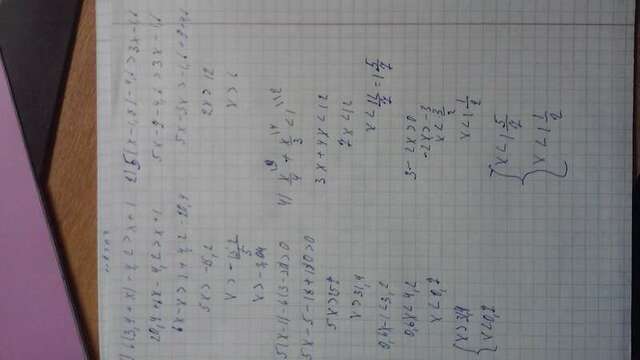 1) 6(3,4+x)-4,2>x+1
20,4+6x-4,2>x+1
6x-x>1+4,2-20,4
5x>-15,2
x>-15,2/5
x>-3,04
2) 5(x-1,8)-4,6>3x-1,6
5x-9-4,6>3x-1,6
5x-3x>-1,6+9+4,6
2x>12
x>6
5x>157
x>31,4
0,6x-1<3,2
0,6x<4,2
x<0,2
{x>31,4
x<0,2
4) x/4 + x/3 <1
3x+4x<12
7x<12
x<12/7=1 5/7
3-2x>0
-2x>-3
x<3/2
x<1 1/2
{x<1 5/7
x<1 1/2